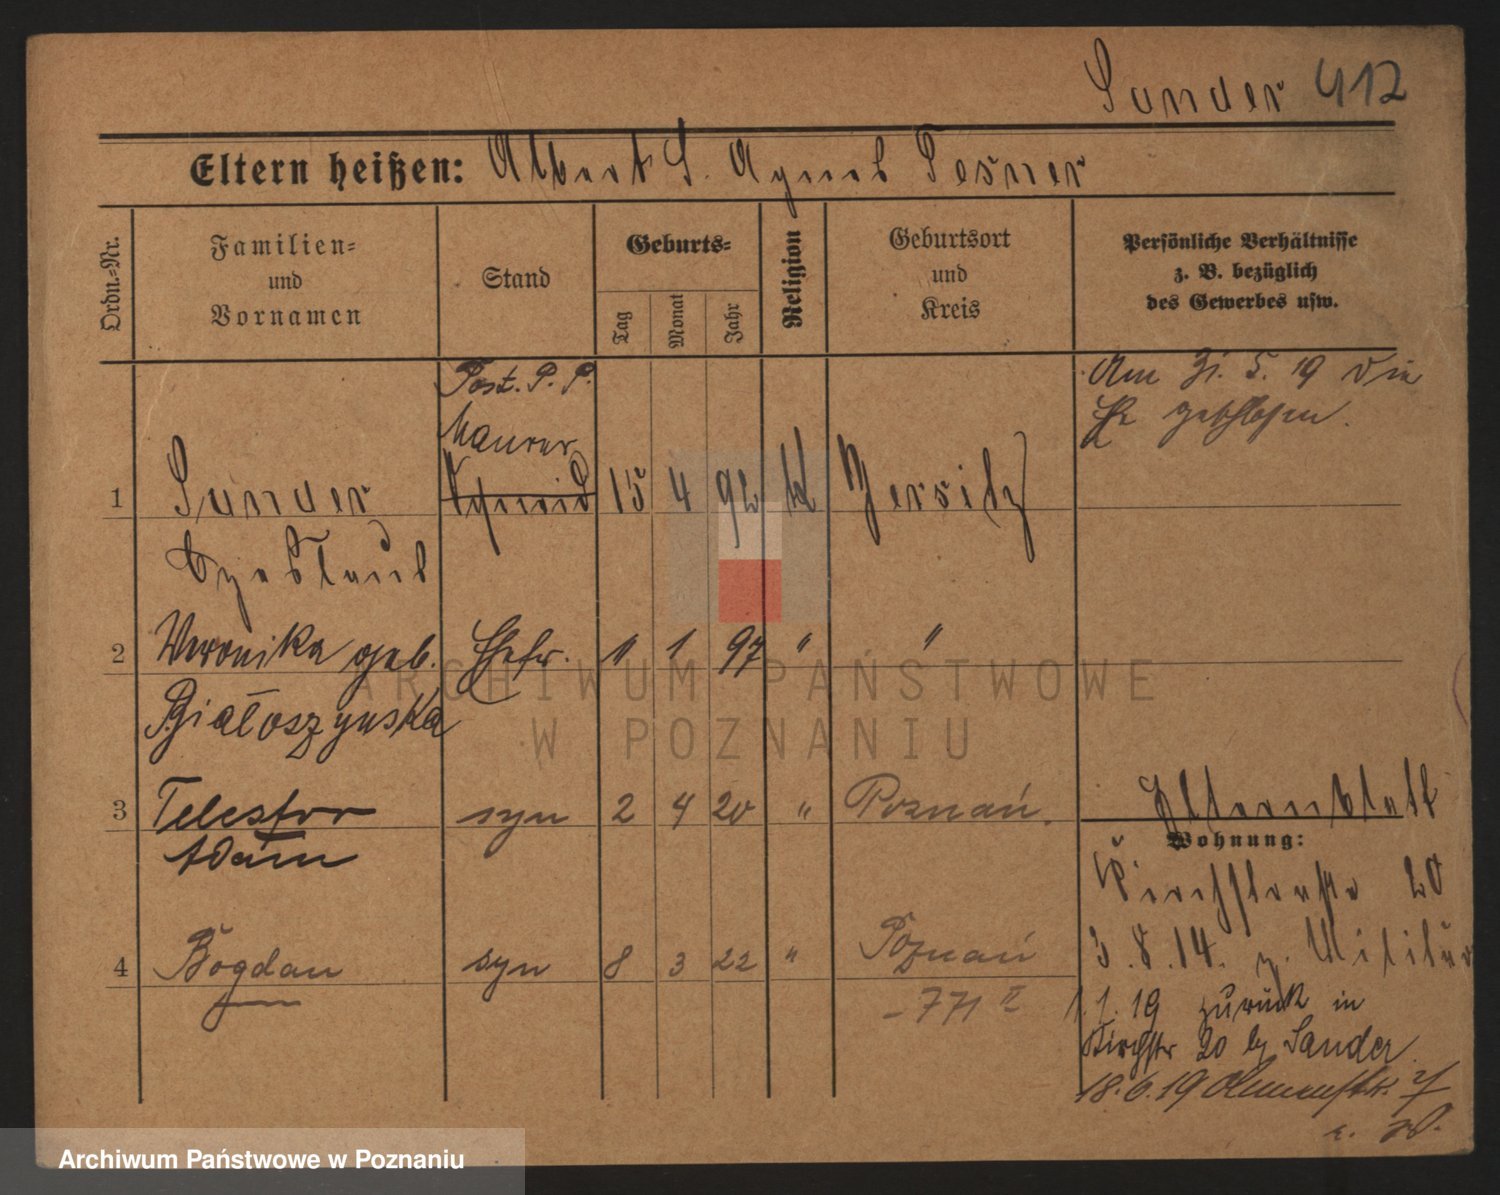 Sander 412
Eltern heißen: Albert S. Agnes Pesner
Ordn.=Nr.
Familien=
und
Vornamen
Stand
Geburts=
Tag
Monat
Jahr
Religion
Geburtsort
und
Kreis
Persönliche Verhältnisse
z. B. bezüglich
des Gewerbes usw.
Post. P. P.
Maurer
1 Sander Schmied 15 4 92 k Jersitz
Czeslaus
Am 31. 5. 19 die
Ehe geschlossen.
2 Veronika geb. Ehefr. 11 1 97 " "
Białoszynska
3 Telesfor syn 2 4 20 " Poznań.
Adam
Elternblatt
Wohnung:
Kirchstraße 20
4 Bogdan syn 8 3 22 " Poznań
- 771 II
3.8.14. z. Militär
1.1.19 zurück in
Kirchstr 20 by Sander
18.6.19
ARCHIWUM PAŃSTWOWE
W POZNANIU
Archiwum Państwowe w Poznaniu